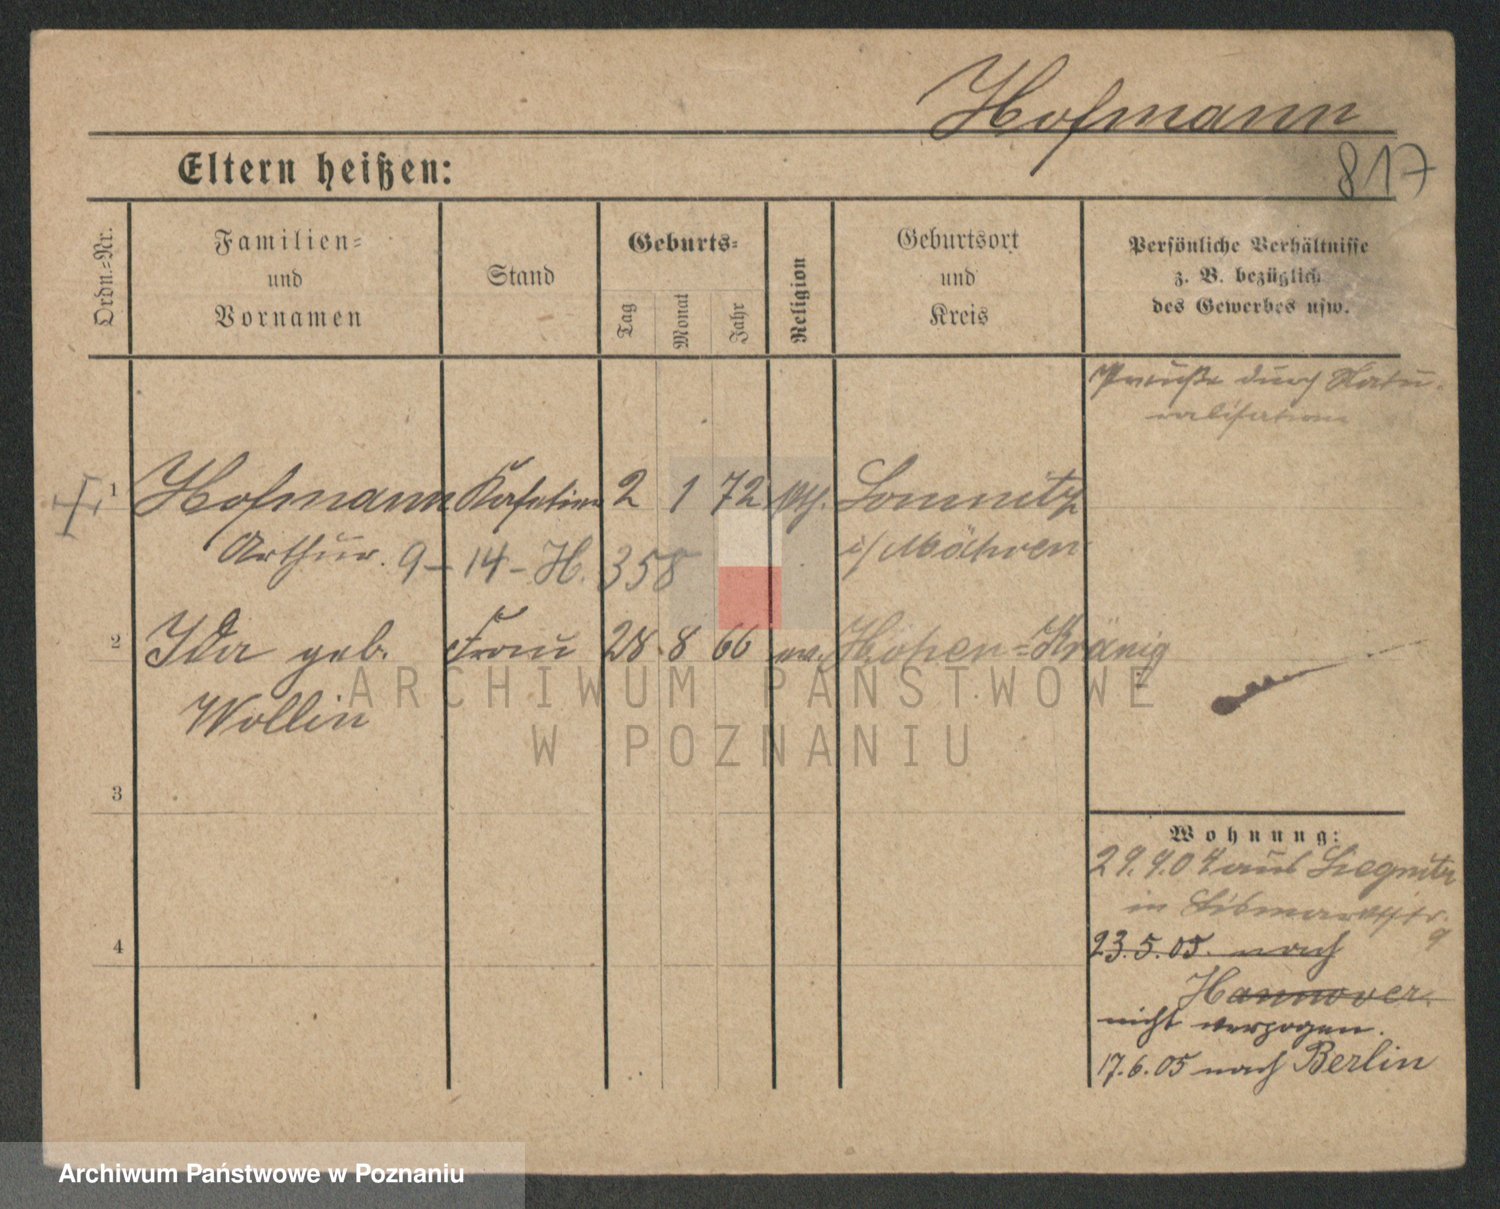 Hofmann
817
Eltern heißen:
Ordn.-Nr.
Familien-
und
Vornamen
Stand
Geburts-
Tag
Monat
Jahr
Religion
Geburtsort
und
Kreis
Persönliche Verhältnisse
z. B. bezüglich
des Gewerbes usw.
Preuße durch Natu-
ralisation
1 Hofmann Kafetier 2 1 72 kth. Lomnitz
Arthur. 9-14-H. 358 i/ Mähren
2 Ida geb. Frau 28 8 66 ev. Hohen-Kränig
Wollin
ARCHIWUM PAŃSTWOWE
W POZNANIU
3
Wohnung:
29.9.04 aus Liegnitz
in Bismarckstr.
9
4
23.5.05. nach
Hannover
nicht verzogen.
17.6.05 nach Berlin
Archiwum Państwowe w Poznaniu